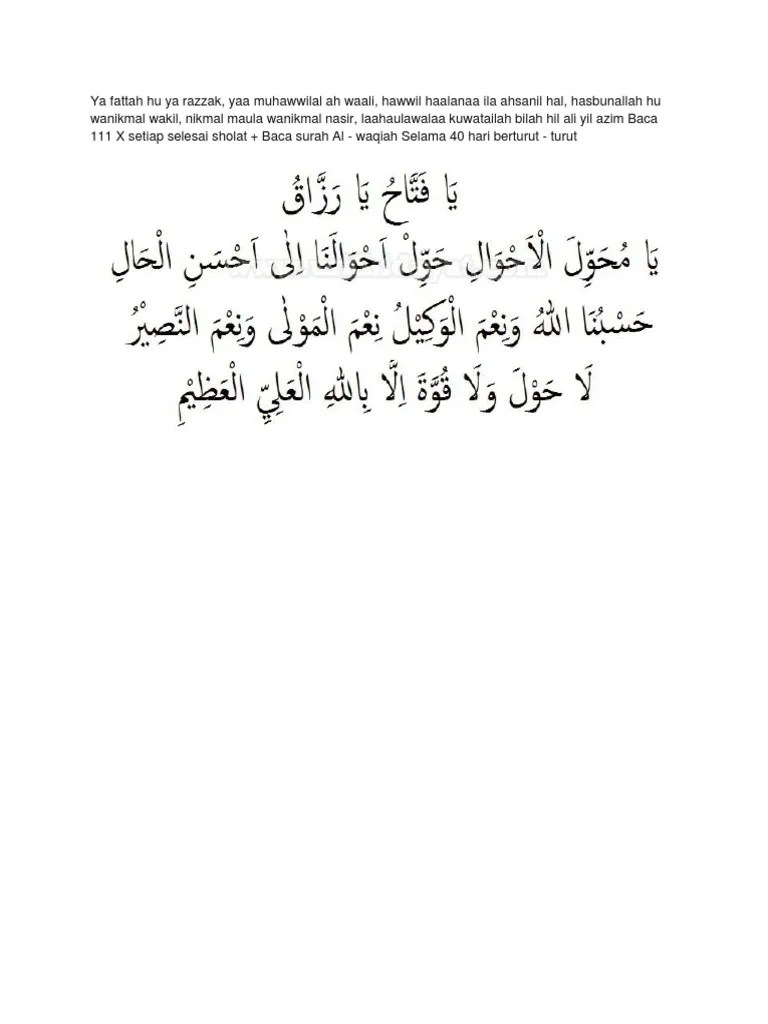 Ya fattah hu ya razzak, yaa muhawwilal ah waali, hawwil haalanaa ila ahsanil hal, hasbunallah hu
wanikmal wakil, nikmal maula wanikmal nasir, laahaulawalaa kuwatailah bilah hil ali yil azim Baca
111 X setiap selesai sholat + Baca surah Al - waqiah Selama 40 hari berturut - turut
يَا فَتَّاحُ يَا رَزَّاقُ
يَا مُحَوِّلَ الْاَحْوَالِ حَوِّلْ اَحْوَالَنَا اِلٰى اَحْسَنِ الْحَالِ
حَسْبُنَا اللهُ وَنِعْمَ الْوَكِيْلُ نِعْمَ الْمَوْلٰى وَنِعْمَ النَّصِيْرُ
لَا حَوْلَ وَلَا قُوَّةَ اِلَّا بِاللهِ الْعَلِيِّ الْعَظِيْمِ